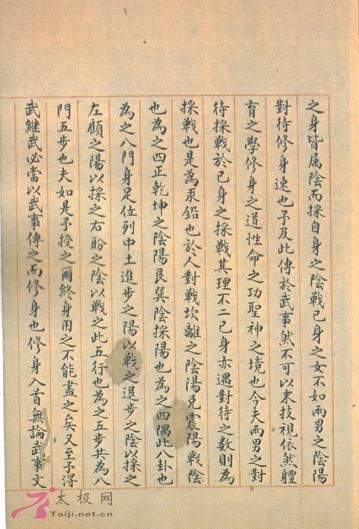 之身皆属陰而採自身之陰戰己身之女不如兩男之陰陽
對待修身速也予及此傳於武事然不可以末技視依然體
育之學修身之道性命之功聖神之境也今夫兩男之對
待採戰於己身之採戰其理不二己身亦遇對待之数則為
採戰也是為汞鉛也於人對戰坎離之陰陽兌震陽戰陰
也為之四正乾坤之陰陽艮巽陰採陽也為之四隅此八卦也
為之八門身足位列中土進步之陽以戰之退步之陰以採之
左顧之陽以採之右盼之陰以戰之此五行也為之五步共為八
門五步也夫如是予授之爾終身用之不能盡之矣又至予得
武繼武必當以武事傳之而修身也修身入首無論武事文
太极网
Taiji.net.cn